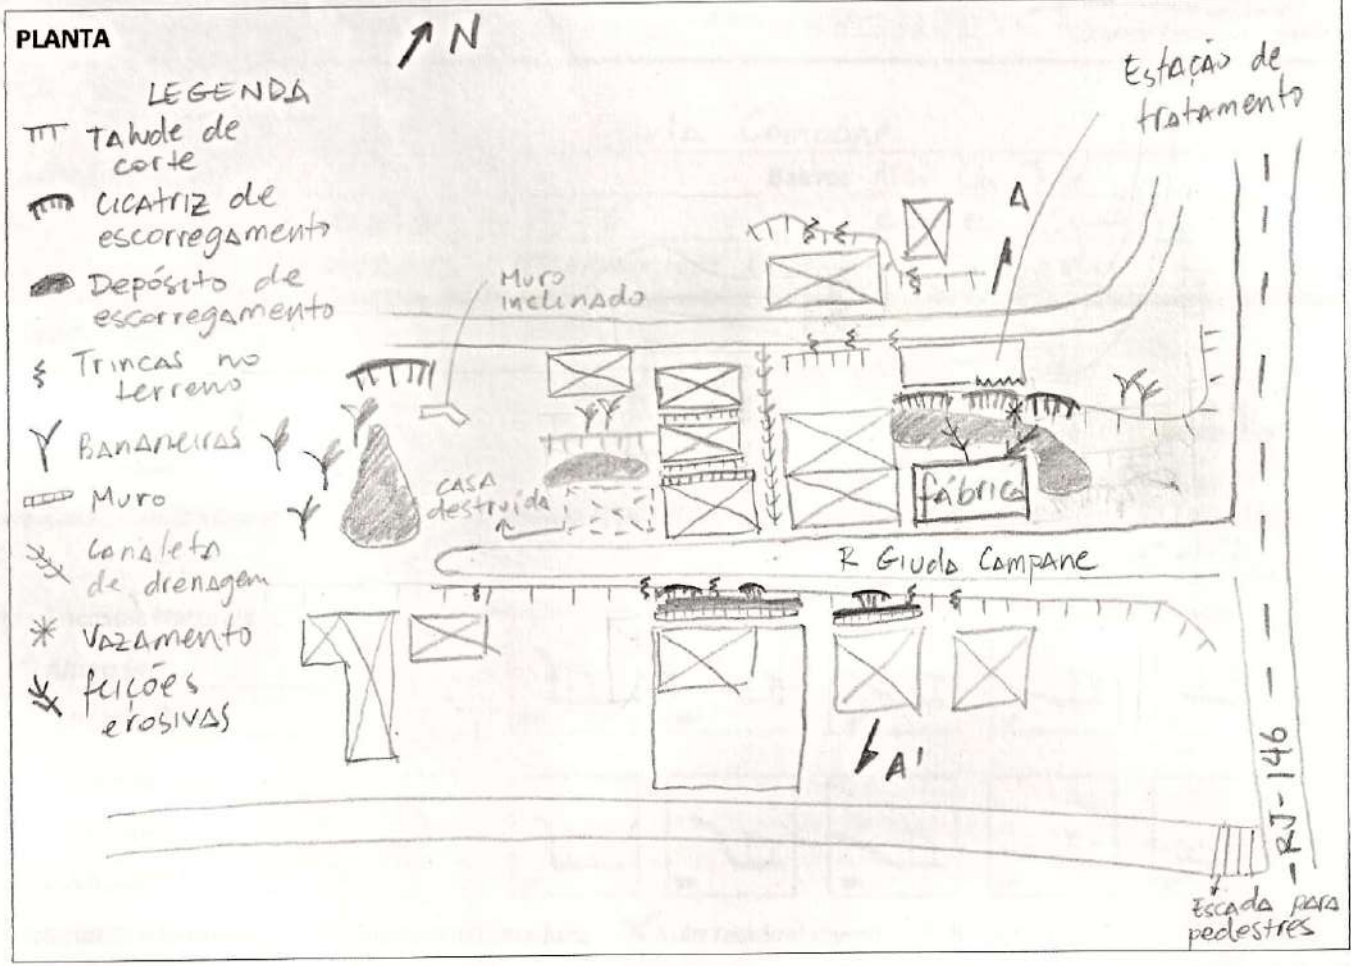 PLANTA
N
LEGENDA
Talude de
corte
Cicatriz de
escorregamento
Depósito de
escorregamento
Trincas no
terreno
Bananeiras
Muro
Canaleta
de drenagem
Vazamento
feições
erosivas
Estação de
tratamento
A
Muro
inclinado
casa
destruída
fábrica
R Giuda Campane
A'
RJ-146
Escada para
pedestres